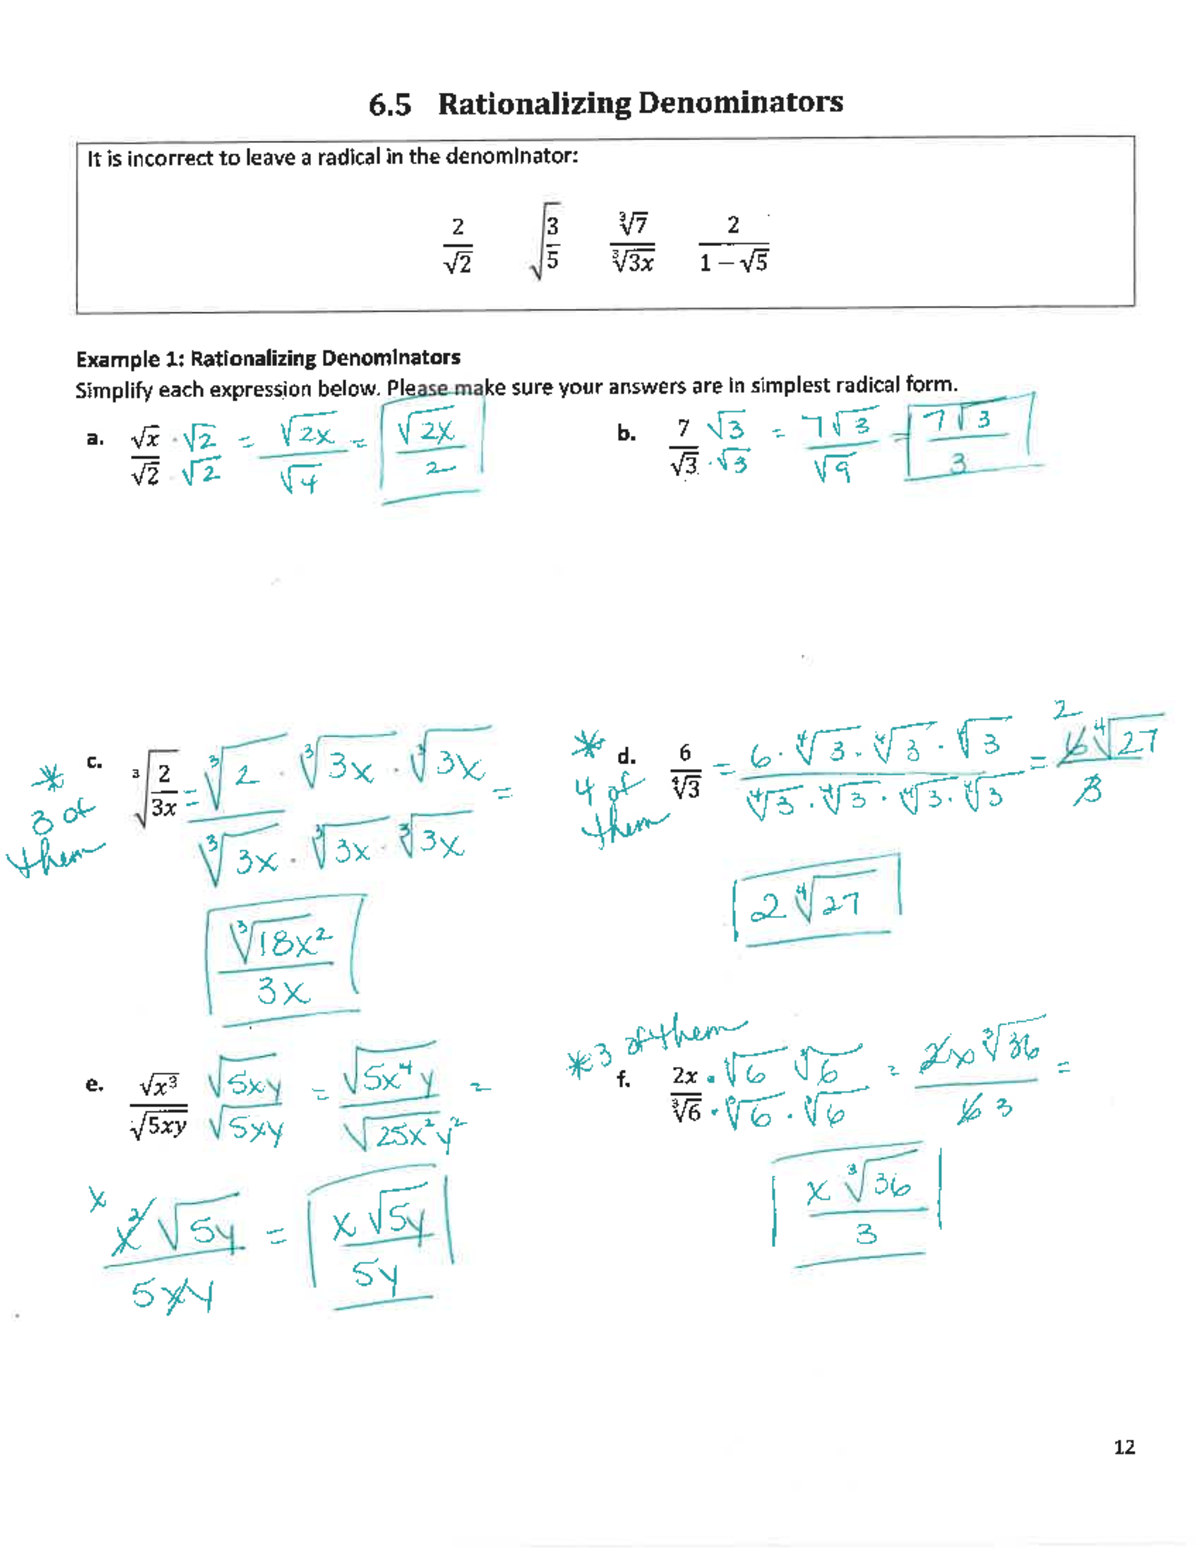 6.5 Rationalizing Denominators
It is incorrect to leave a radical in the denominator:
2/√2 √(3/5) ∛7/∛3x 2/(1 − √5)
Example 1: Rationalizing Denominators
Simplify each expression below. Please make sure your answers are in simplest radical form.
a. √x/√2 · √2/√2 = √2x/√4 = √2x/2
b. 7/√3 · √3/√3 = 7√3/√9 = 7√3/3
* 3 of them
c. ∛(2/3x) = ∛2/∛3x · ∛3x/∛3x · ∛3x/∛3x =
∛18x²/3x
* 4 of them
d. 6/∜3 = 6 · ∜3 · ∜3 · ∜3/∜3 · ∜3 · ∜3 · ∜3 = 2 6∜27/3
2∜27
e. √x³/√5xy √5xy/√5xy = √5x⁴y/√25x²y² =
x x²√5y/5xy = x√5y/5y
* 3 of them
f. 2x/∛6 · ∛6 ∛6/∛6 · ∛6 = 2x∛36/6 3 =
x∛36/3
12